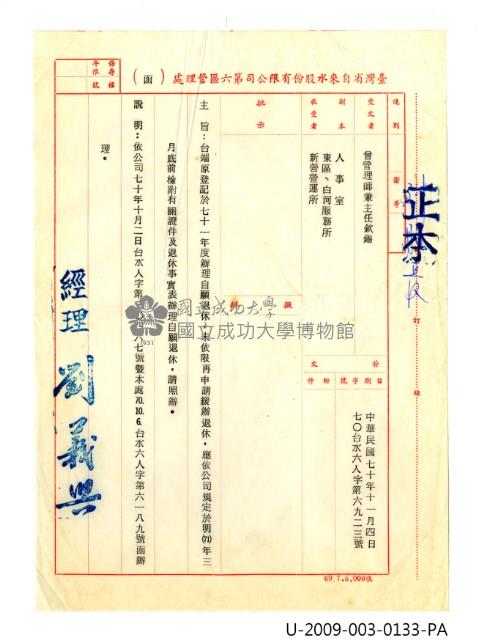 臺灣省自來水股份有限公司第六區管理處（函）
保存年限
檔號
速別
密等
正本
受文者
曾管理師兼主任欽錫
副本
收受者
人事室
東區、白河服務所
新營營運所
批示
擬辦
發文
日期
字號
附件
中華民國七十年十一月四日
七〇台水六人字第六九二三號
主旨：台端原登記於七十一年度辦理自願退休，未依限再申請緩辦退休，應依公司規定於明(71)年三
月底前檢附有關證件及退休事實表辦理自願退休，請照辦。
說明：依公司七十年十月二日台水人字第
六七號暨本處70.10.6.台水六人字第六一八九號函辦
理。
經理 劉義興
訂
線
69.7.5,000張
國立成功大學
國立成功大學博物館
1931
U-2009-003-0133-PA